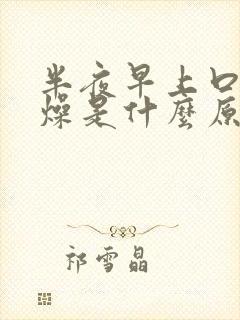 半夜早上口
燥是什麼原
祁雪晶